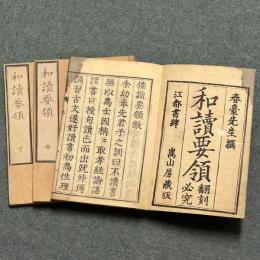 春臺先生撰
和讀要領
翻刻必究
江都書肆
嵩山房藏版
倭讀要領敘
余幼奉先君子之訓曰不讀書
無以爲士因稱二取孝經論語
讀書口授句讀已而出就外傅
誦習古文遂好讀書初爲性理
和讀要領 中
和讀要領 下